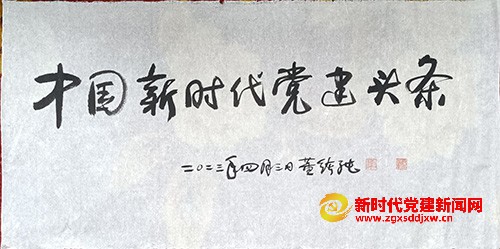 中国新时代党建头条
二〇二三年四月三日 董
新时代党建新闻网
www.zgxsddjxw.cn